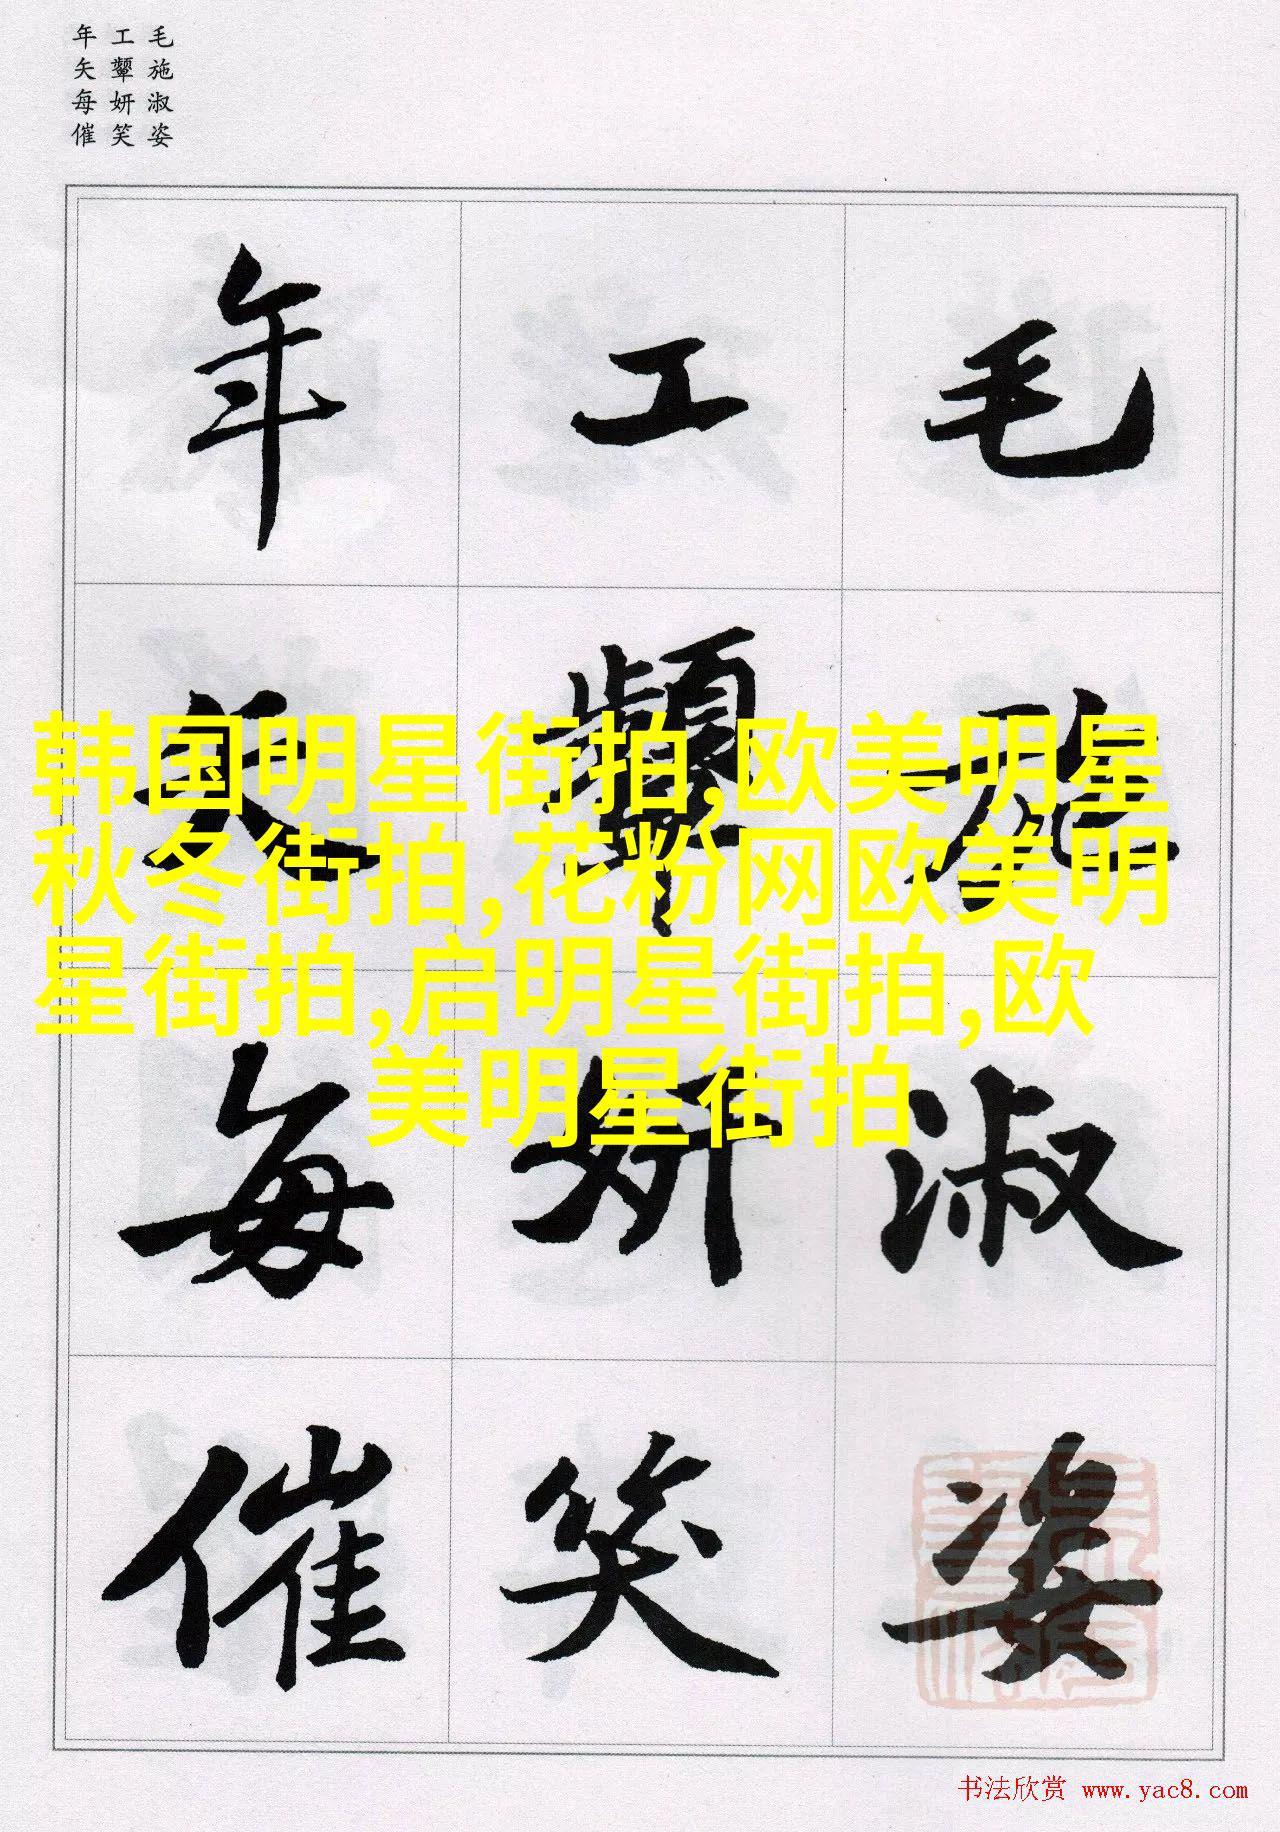 毛施淑姿
工颦妍笑
年矢每催
毛施淑姿
工颦妍笑
年矢每催
韩国明星街拍,欧美明星
秋冬街拍,花粉网欧美明
星街拍,启明星街拍,欧
美明星街拍
书法欣赏 www.yac8.com